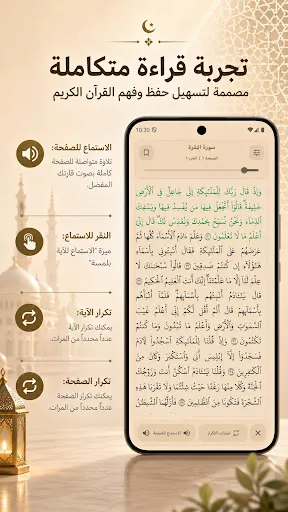 تجربة قراءة متكاملة
مصممة لتسهيل حفظ وفهم القرآن الكريم
الاستماع للصفحة:
تلاوة متواصلة للصفحة
كاملة بصوت قارئك
المفضل.
النقر للاستماع:
ميزة "الاستماع للآية
بلمسة"
تكرار الآية:
يمكنك تكرار الآية
عدداً محدداً من المرات.
تكرار الصفحة:
يمكنك تكرار الصفحة
عدداً محدداً من المرات.
10:30
سورة البقرة
وَإِذْ قَالَ رَبُّكَ لِلْمَلَٰٓئِكَةِ إِنِّى جَاعِلٌ فِى ٱلْأَرْضِ
خَلِيفَةً قَالُوٓا۟ أَتَجْعَلُ فِيهَا مَن يُفْسِدُ فِيهَا وَيَسْفِكُ
ٱلدِّمَآءَ وَنَحْنُ نُسَبِّحُ بِحَمْدِكَ وَنُقَدِّسُ لَكَ قَالَ إِنِّىٓ
أَعْلَمُ مَا لَا تَعْلَمُونَ وَعَلَّمَ ءَادَمَ ٱلْأَسْمَآءَ كُلَّهَا ثُمَّ
عَرَضَهُمْ عَلَى ٱلْمَلَٰٓئِكَةِ فَقَالَ أَنۢبِـُٔونِى بِأَسْمَآءِ
هَٰٓؤُلَآءِ إِن كُنتُمْ صَٰدِقِينَ قَالُوا۟ سُبْحَٰنَكَ لَا
عِلْمَ لَنَآ إِلَّا مَا عَلَّمْتَنَآ إِنَّكَ أَنتَ ٱلْعَلِيمُ ٱلْحَكِيمُ
قَالَ يَٰٓـَٔادَمُ أَنۢبِئْهُم بِأَسْمَآئِهِمْ فَلَمَّآ أَنۢبَأَهُم
بِأَسْمَآئِهِمْ قَالَ أَلَمْ أَقُل لَّكُمْ إِنِّىٓ أَعْلَمُ غَيْبَ
ٱلسَّمَٰوَٰتِ وَٱلْأَرْضِ وَأَعْلَمُ مَا تُبْدُونَ وَمَا كُنتُمْ
تَكْتُمُونَ وَإِذْ قُلْنَا لِلْمَلَٰٓئِكَةِ ٱسْجُدُوا۟ لِءَادَمَ
فَسَجَدُوٓا۟ إِلَّآ إِبْلِيسَ أَبَىٰ وَٱسْتَكْبَرَ وَكَانَ مِنَ
ٱلْكَٰفِرِينَ وَقُلْنَا يَٰٓـَٔادَمُ ٱسْكُنْ أَنتَ وَزَوْجُكَ
ٱلْجَنَّةَ وَكُلَا مِنْهَا رَغَدًا حَيْثُ شِئْتُمَا وَلَا تَقْرَبَا هَٰذِهِ
ٱلشَّجَرَةَ فَتَكُونَا مِنَ ٱلظَّٰلِمِينَ فَأَزَلَّهُمَا ٱلشَّيْطَٰنُ
خيارات التكرار
الاستماع للصفحة